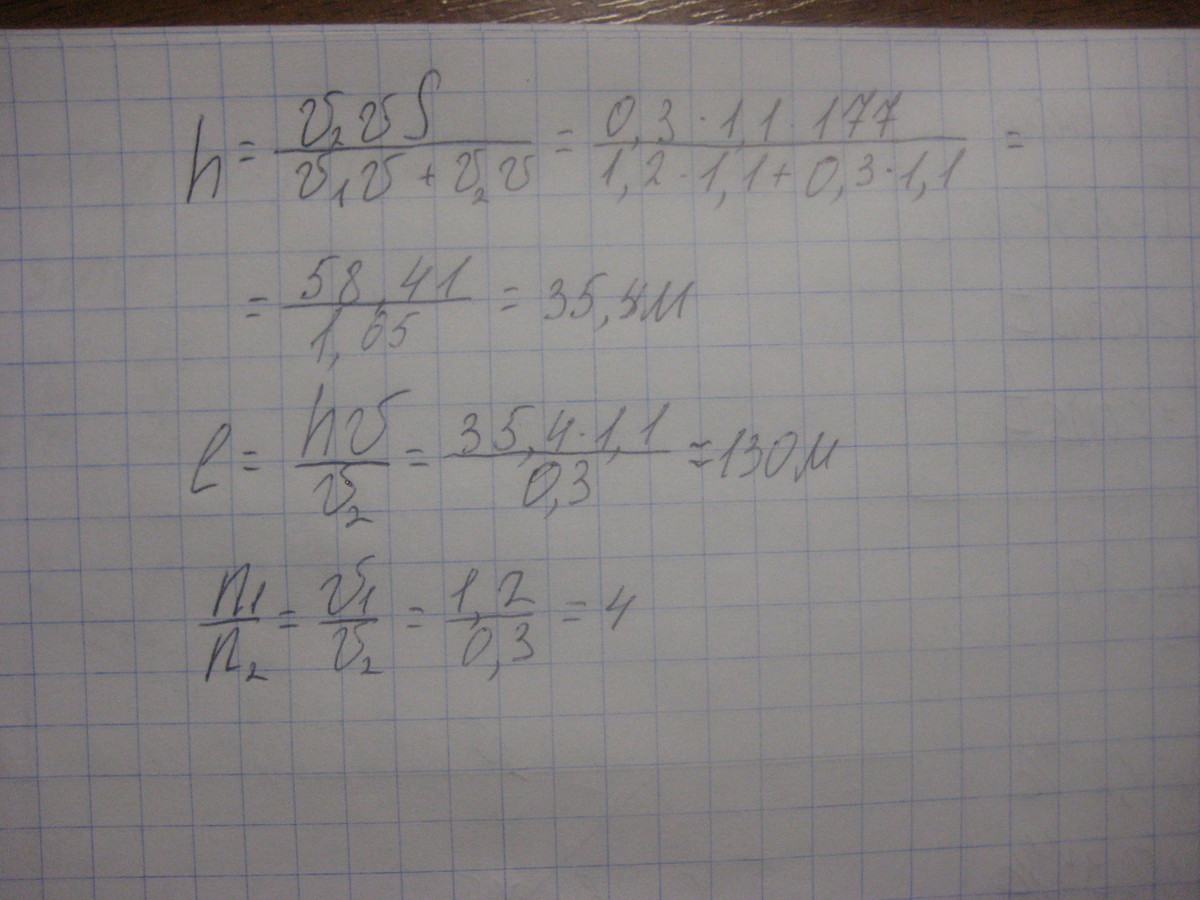 h = v₂vS / (v₁v + v₂v) = 0,3·1,1·177 / (1,2·1,1+0,3·1,1) =
= 58,41 / 1,65 = 35,4м
l = hv / v₂ = 35,4·1,1 / 0,3 ≈ 130м
n₁ / n₂ = v₁ / v₂ = 1,2 / 0,3 = 4